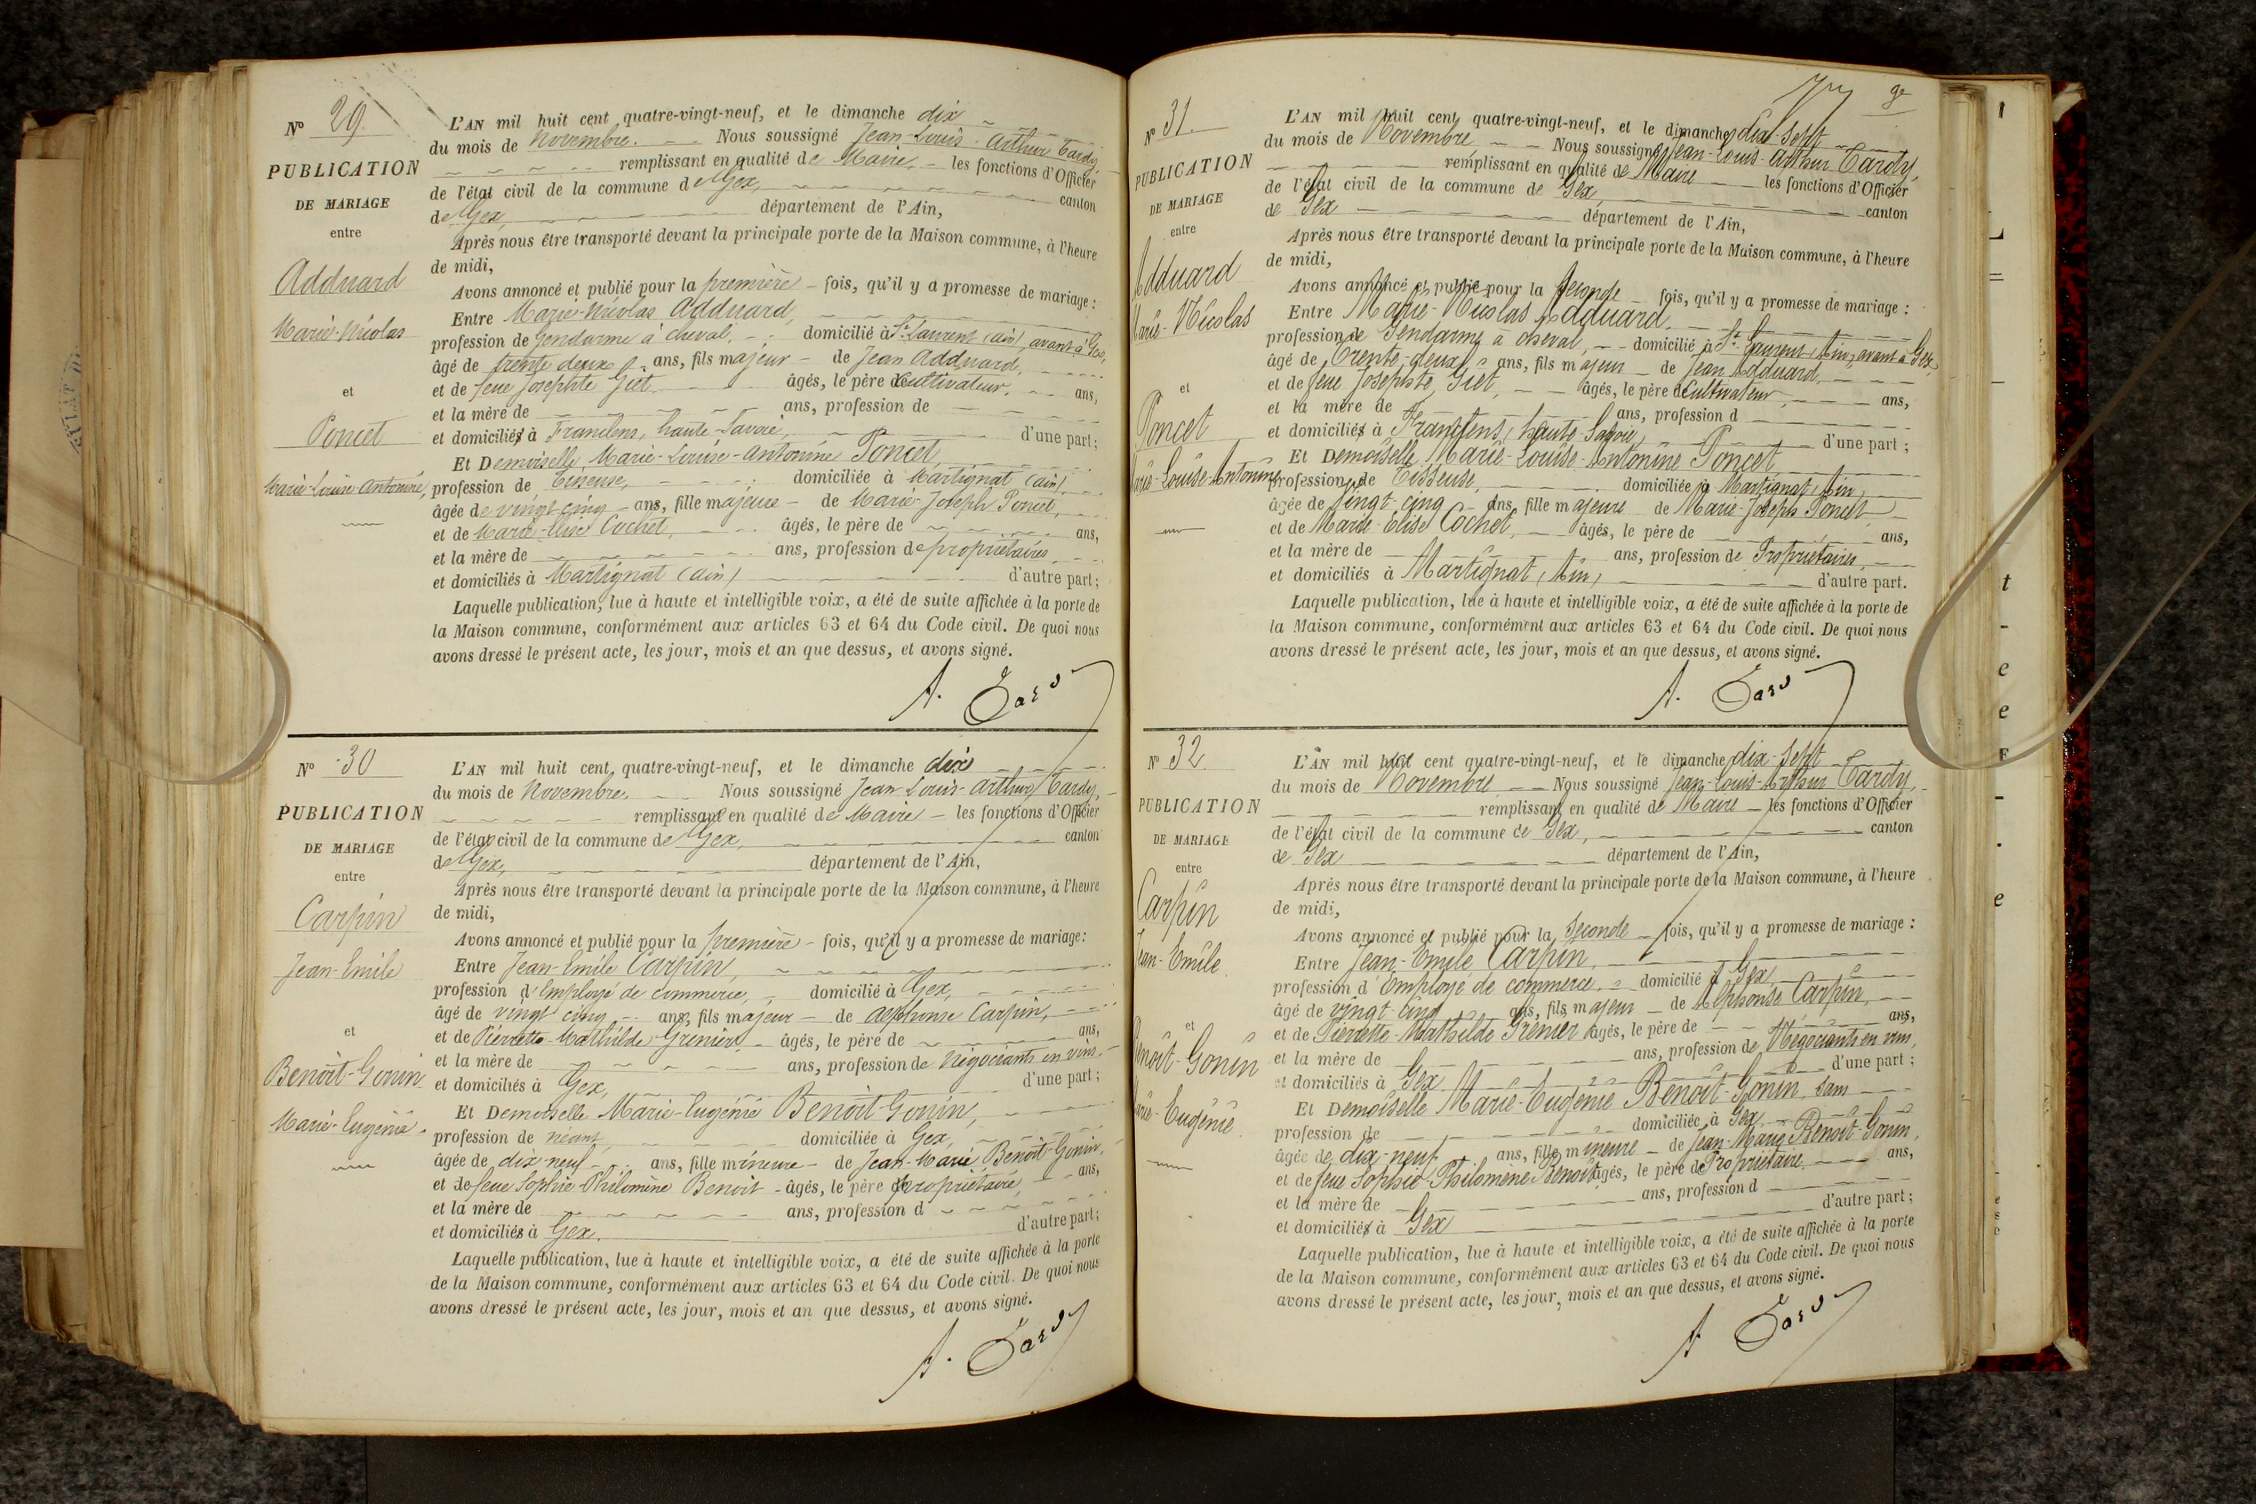 N° 29.
PUBLICATION
DE MARIAGE
entre
Adduard
Marie-Nicolas
et
Poncet
Marie-Louise-Antonine,
L'AN mil huit cent quatre-vingt-neuf, et le dimanche dix
du mois de Novembre. Nous soussigné Jean-Louis-Arthur Tardy,
remplissant en qualité de Maire les fonctions d'Officier
de l'état civil de la commune de Gex, canton
de Gex, département de l'Ain,
Après nous être transporté devant la principale porte de la Maison commune, à l'heure
de midi,
Avons annoncé et publié pour la première fois, qu'il y a promesse de mariage :
Entre Marie-Nicolas Adduard,
profession de gendarme à cheval, domicilié à St-Laurent (Ain), avant à Gex,
âgé de trente deux ans, fils majeur de Jean Adduard,
et de feue Josephte Giet, âgés, le père de cultivateur, ans,
et la mère de ans, profession de
et domiciliés à Franclens, haute-Savoie, d'une part ;
Et Demoiselle Marie-Louise-Antonine Poncet
profession de Tisseuse, domiciliée à Martignat (Ain),
âgée de vingt-cinq ans, fille majeure de Marie-Joseph Poncet,
et de Marie-Elise Cochet, âgés, le père de ans,
et la mère de ans, profession de propriétaires,
et domiciliés à Martignat (Ain) d'autre part ;
Laquelle publication, lue à haute et intelligible voix, a été de suite affichée à la porte de
la Maison commune, conformément aux articles 63 et 64 du Code civil. De quoi nous
avons dressé le présent acte, les jour, mois et an que dessus, et avons signé.
A. Tardy
N° 30
PUBLICATION
DE MARIAGE
entre
Carpin
Jean-Emile
et
Benoît-Gonin
Marie-Eugénie
L'AN mil huit cent quatre-vingt-neuf, et le dimanche dix
du mois de Novembre. Nous soussigné Jean-Louis-Arthur Tardy,
remplissant en qualité de Maire les fonctions d'Officier
de l'état civil de la commune de Gex, canton
de Gex, département de l'Ain,
Après nous être transporté devant la principale porte de la Maison commune, à l'heure
de midi,
Avons annoncé et publié pour la première fois, qu'il y a promesse de mariage :
Entre Jean-Emile Carpin,
profession d'Employé de commerce, domicilié à Gex,
âgé de vingt cinq ans, fils majeur de Alphonse Carpin,
et de Pierrette-Mathilde Grenier, âgés, le père de ans,
et la mère de ans, profession de Négociants en vins
et domiciliés à Gex, d'une part ;
Et Demoiselle Marie-Eugénie Benoît-Gonin,
profession de néant, domiciliée à Gex,
âgée de dix neuf ans, fille mineure de Jean-Marie Benoît-Gonin,
et de feue Sophie-Philomène Benoit âgés, le père de propriétaire, ans,
et la mère de ans, profession d
et domiciliés à Gex. d'autre part ;
Laquelle publication, lue à haute et intelligible voix, a été de suite affichée à la porte
de la Maison commune, conformément aux articles 63 et 64 du Code civil. De quoi nous
avons dressé le présent acte, les jour, mois et an que dessus, et avons signé.
A. Tardy
N° 31.
PUBLICATION
DE MARIAGE
entre
Adduard
Marie-Nicolas
et
Poncet
Marie-Louise-Antonine
L'AN mil huit cent quatre-vingt-neuf, et le dimanche dix-sept
du mois de Novembre, Nous soussigné Jean-Louis-Arthur Tardy,
remplissant en qualité de Maire les fonctions d'Officier
de l'état civil de la commune de Gex, canton
de Gex département de l'Ain,
Après nous être transporté devant la principale porte de la Maison commune, à l'heure
de midi,
Avons annoncé et publié pour la Seconde fois, qu'il y a promesse de mariage :
Entre Marie-Nicolas Adduard.
profession de Gendarme à cheval, domicilié à St-Laurent, Ain, avant à Gex,
âgé de Trente-deux ans, fils majeur de Jean Adduard,
et de feue Josephte Giet, âgés, le père de Cultivateur, ans,
et la mère de ans, profession d
et domiciliés à Franclens, haute-Savoie, d'une part ;
Et Demoiselle Marie-Louise-Antonine Poncet
profession de Tisseuse, domiciliée à Martignat, Ain,
âgée de Vingt-cinq ans, fille majeure de Marie-Joseph Poncet,
et de Marie-Elise Cochet, âgés, le père de ans,
et la mère de ans, profession de Propriétaires,
et domiciliés à Martignat, Ain, d'autre part.
Laquelle publication, lue à haute et intelligible voix, a été de suite affichée à la porte de
la Maison commune, conformément aux articles 63 et 64 du Code civil. De quoi nous
avons dressé le présent acte, les jour, mois et an que dessus, et avons signé.
A. Tardy
N° 32.
PUBLICATION
DE MARIAGE
entre
Carpin
Jean-Emile.
et
Benoît-Gonin
Marie-Eugénie.
L'AN mil huit cent quatre-vingt-neuf, et le dimanche dix-sept
du mois de Novembre, Nous soussigné Jean-Louis-Arthur Tardy,
remplissant en qualité de Maire les fonctions d'Officier
de l'état civil de la commune de Gex, canton
de Gex département de l'Ain,
Après nous être transporté devant la principale porte de la Maison commune, à l'heure
de midi,
Avons annoncé et publié pour la Seconde fois, qu'il y a promesse de mariage :
Entre Jean-Emile Carpin,
profession d'Employé de commerce, domicilié à Gex,
âgé de vingt-cinq ans, fils majeur de Alphonse Carpin,
et de Pierrette-Mathilde Grenier âgés, le père de ans,
et la mère de ans, profession de Négociants en vins,
et domiciliés à Gex d'une part ;
Et Demoiselle Marie-Eugénie Benoît-Gonin, sans
profession de domiciliée à Gex,
âgée de dix-neuf ans, fille mineure de Jean-Marie Benoît-Gonin,
et de feue Sophie-Philomène Benoit âgés, le père de Propriétaire, ans,
et la mère de ans, profession d
et domiciliés à Gex d'autre part ;
Laquelle publication, lue à haute et intelligible voix, a été de suite affichée à la porte
de la Maison commune, conformément aux articles 63 et 64 du Code civil. De quoi nous
avons dressé le présent acte, les jour, mois et an que dessus, et avons signé.
A. Tardy